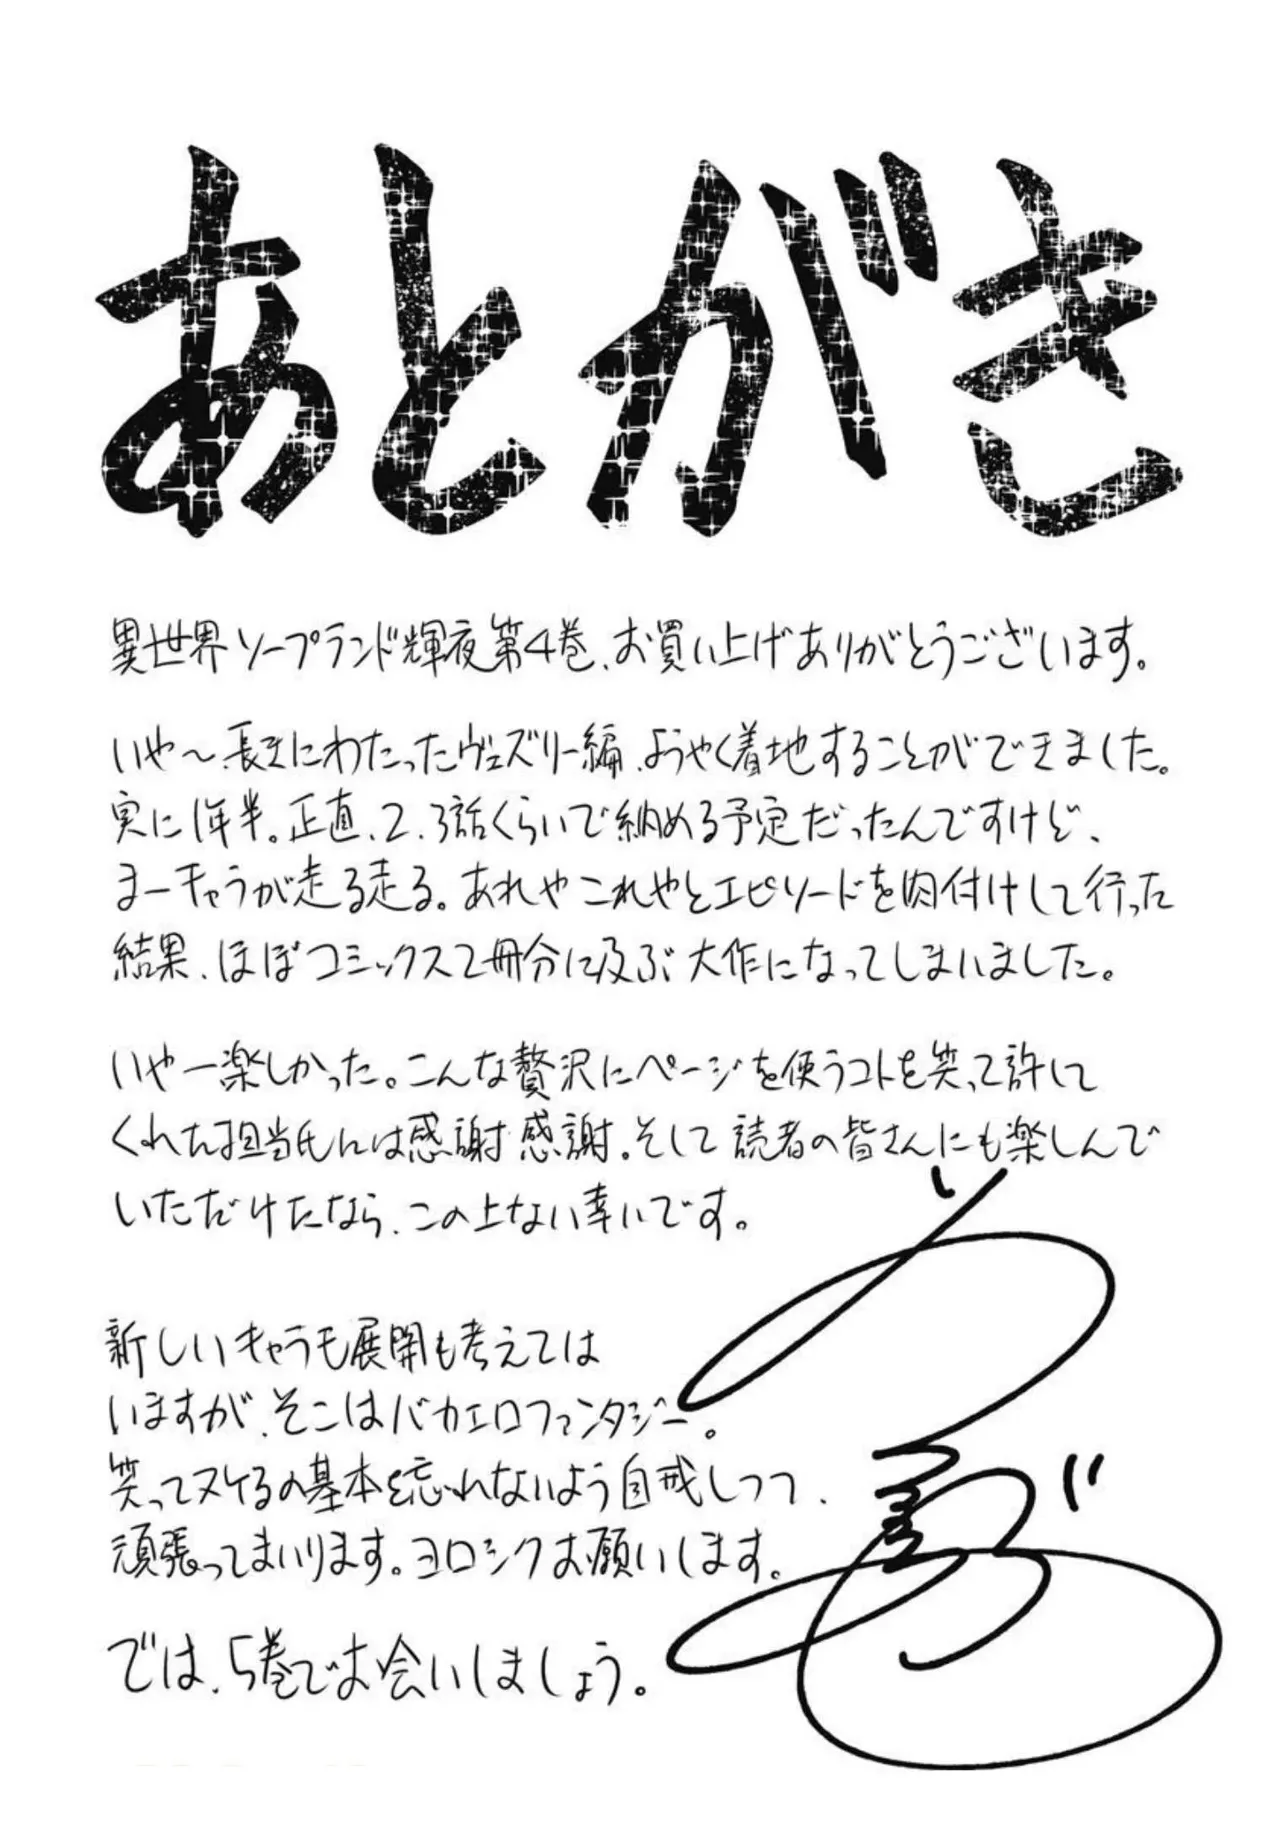 あとがき
異世界ソープランド輝夜第4巻、お買い上げありがとうございます。
いや〜、長きにわたったヴェズリー編、ようやく着地することができました。
実に1年半。正直、2、3話くらいで納める予定だったんですけど、
まーキャラが走る走る。あれやこれやとエピソードを肉付けして行った
結果、ほぼコミックス2冊分に及ぶ大作になってしまいました。
いやー楽しかった。こんな贅沢にページを使うコトを笑って許して
くれた担当氏には感謝感謝。そして読者の皆さんにも楽しんで
いただけたなら、この上ない幸いです。
新しいキャラも展開も考えては
いますが、そこはバカエロファンタジー。
笑ってヌケるの基本を忘れないよう自戒しつつ、
頑張ってまいります。ヨロシクお願いします。
では、5巻でお会いしましょう。